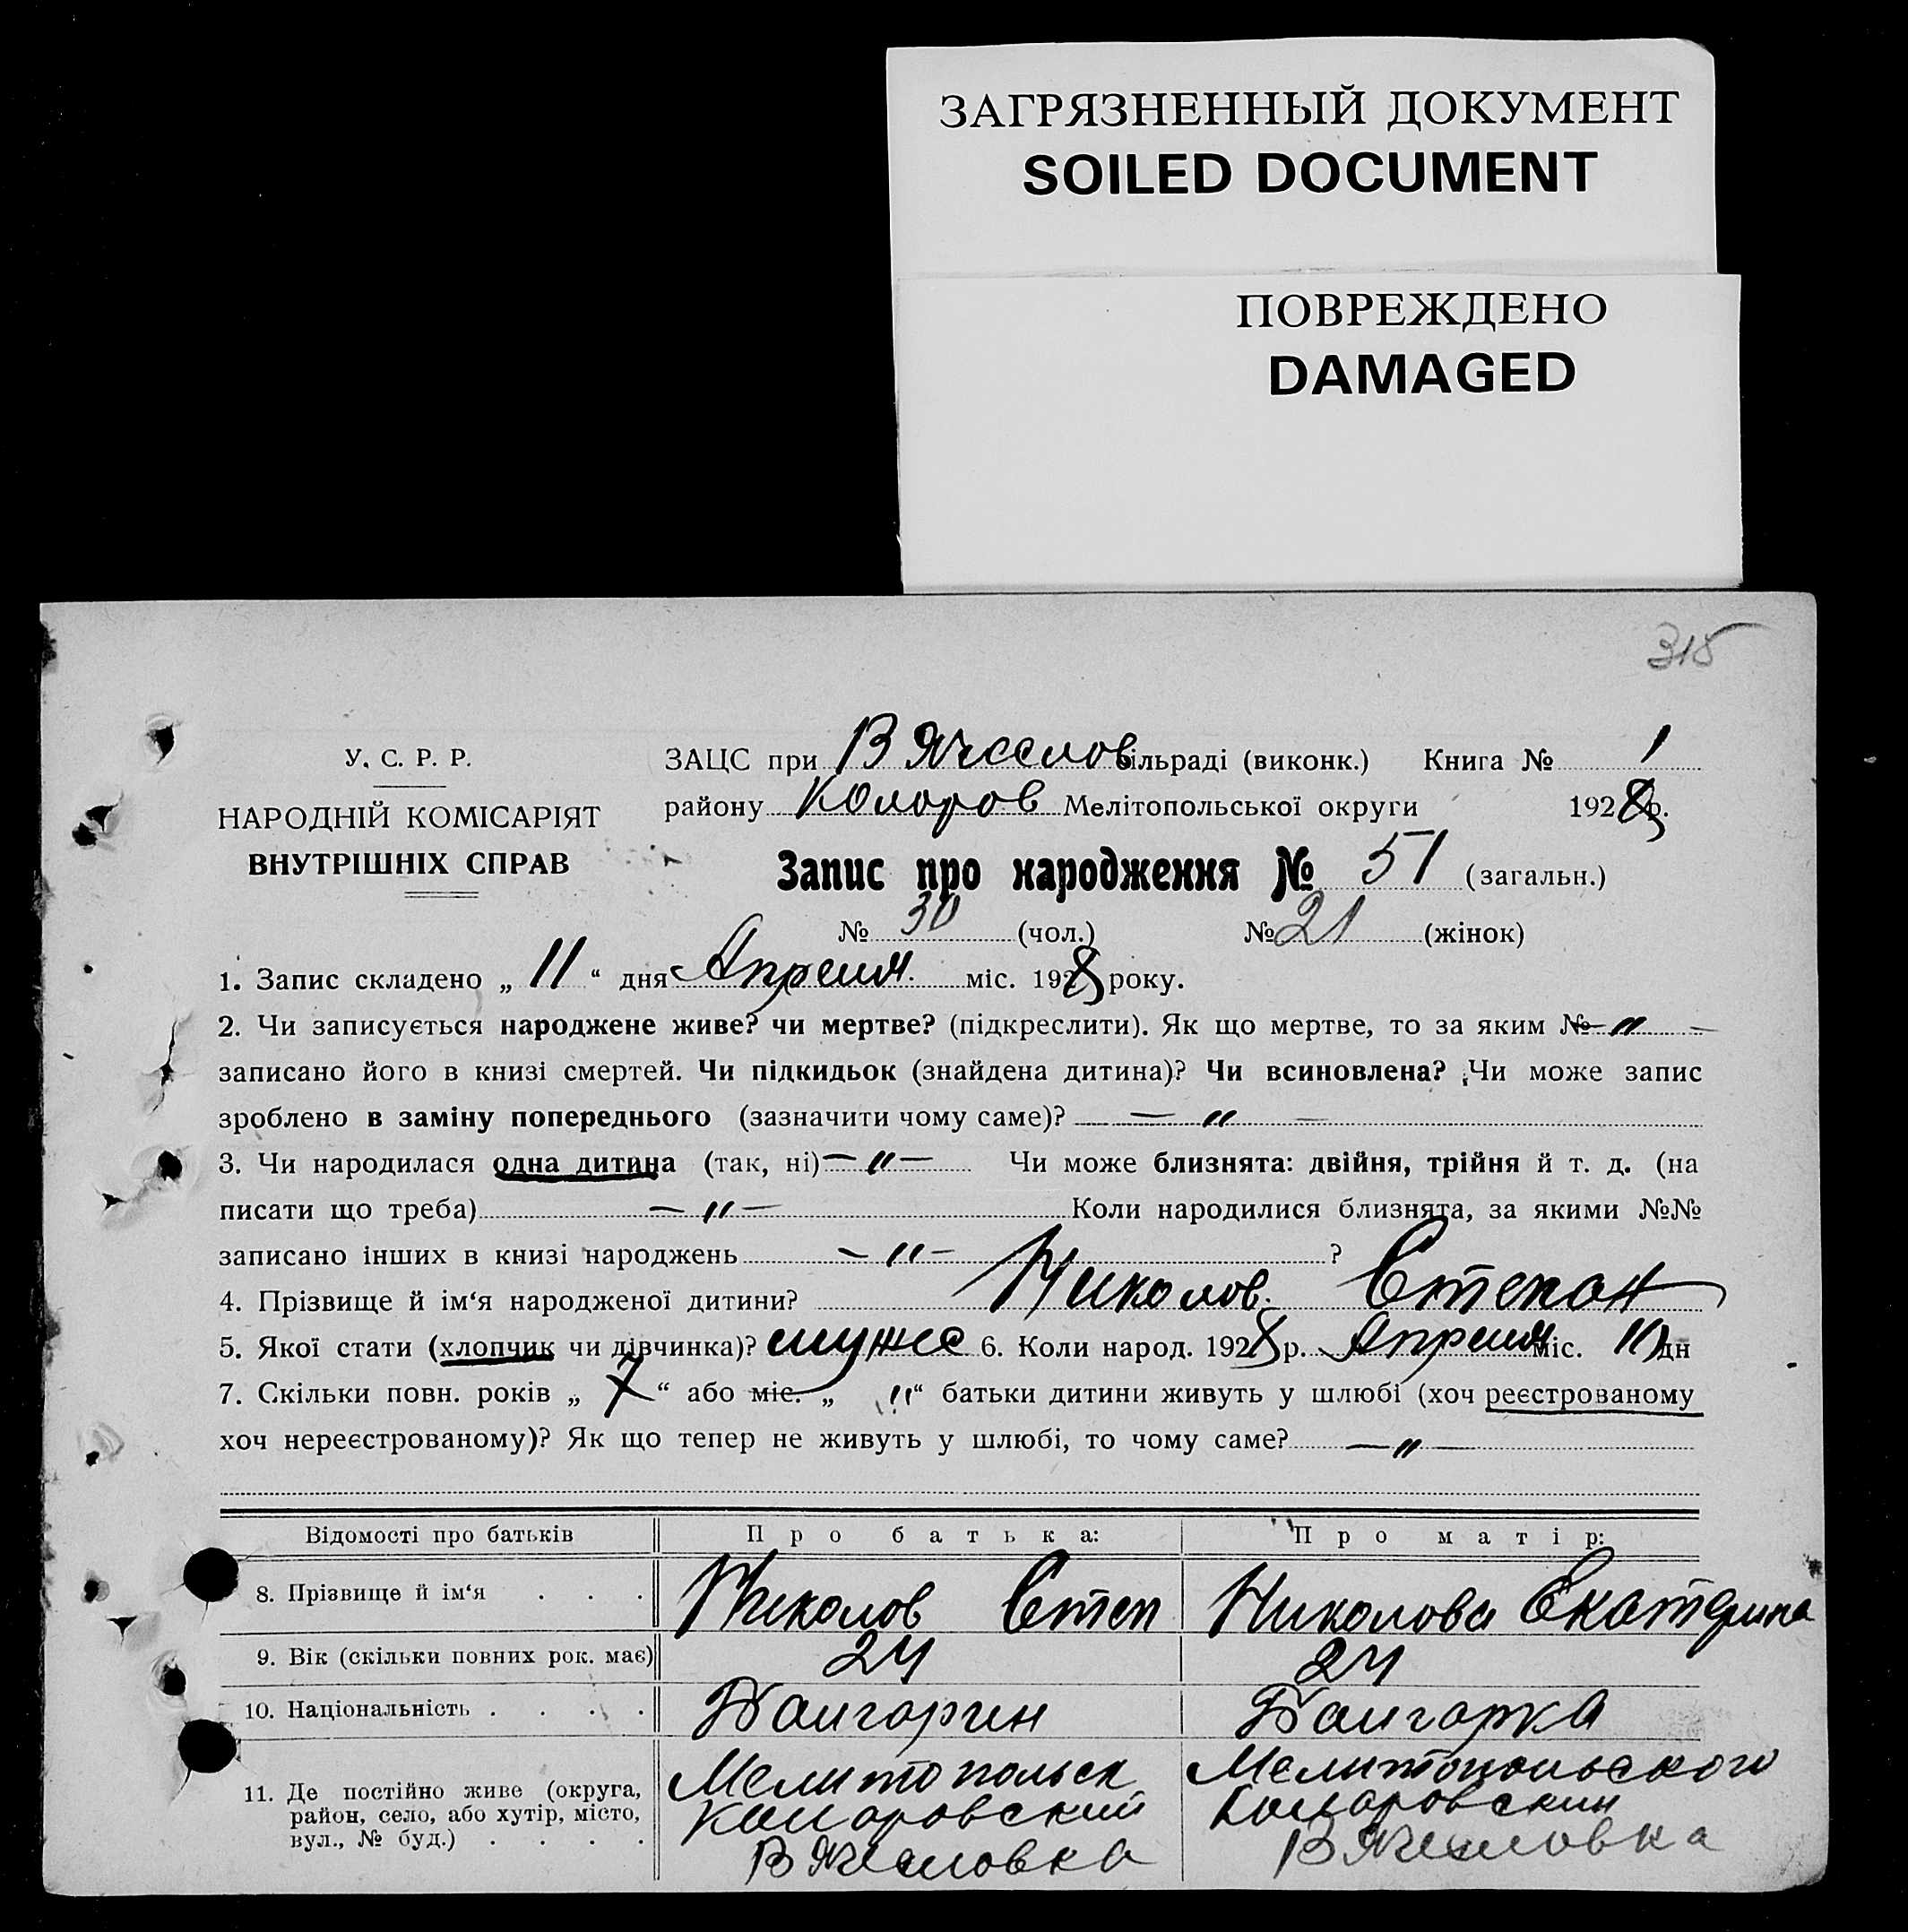 ЗАГРЯЗНЕННЫЙ ДОКУМЕНТ
SOILED DOCUMENT
ПОВРЕЖДЕНО
DAMAGED
315
У. С. Р. Р.
НАРОДНІЙ КОМІСАРІЯТ
ВНУТРІШНІХ СПРАВ
ЗАЦС при Вячеслов вільраді (виконк.) Книга № 1
району Колоров Мелітопольської округи 1928 р.
Запис про народження № 51 (загальн.)
№ 30 (чол.) № 21 (жінок)
1. Запис складено „ 11 “ дня Апреля міс. 1928 року.
2. Чи записується народжене живе? чи мертве? (підкреслити). Як що мертве, то за яким № — " —
записано його в книзі смертей. Чи підкидьок (знайдена дитина)? Чи всиновлена? Чи може запис
зроблено в заміну попереднього (зазначити чому саме)? — " —
3. Чи народилася одна дитина (так, ні) — " — Чи може близнята: двійня, трійня й т. д. (на
писати що треба) — " — Коли народилися близнята, за якими №№
записано інших в книзі народжень — " — ?
4. Прізвище й ім‘я народженої дитини? Николов Степан
5. Якої стати (хлопчик чи дівчинка)? 6. Коли народ. 1928 р. Апреля міс. дн
7. Скільки повн. років „ 7 “ або міс. „ " “ батьки дитини живуть у шлюбі (хоч реєстрованому
хоч нереєстрованому)? Як що тепер не живуть у шлюбі, то чому саме? — " —
Відомості про батьків Про батька: Про матір:
8. Прізвище й ім‘я . . . Николов Степ Николова Екатерина
9. Вік (скільки повних рок. має) 24 24
10. Національність . . . . Болгарин Болгарка
11. Де постійно живе (округа, Мелитопольск Мелитопольского
район, село, або хутір, місто, Коларовский Коларовский
вул., № буд.) . . . . Вячесловка Вячесловка